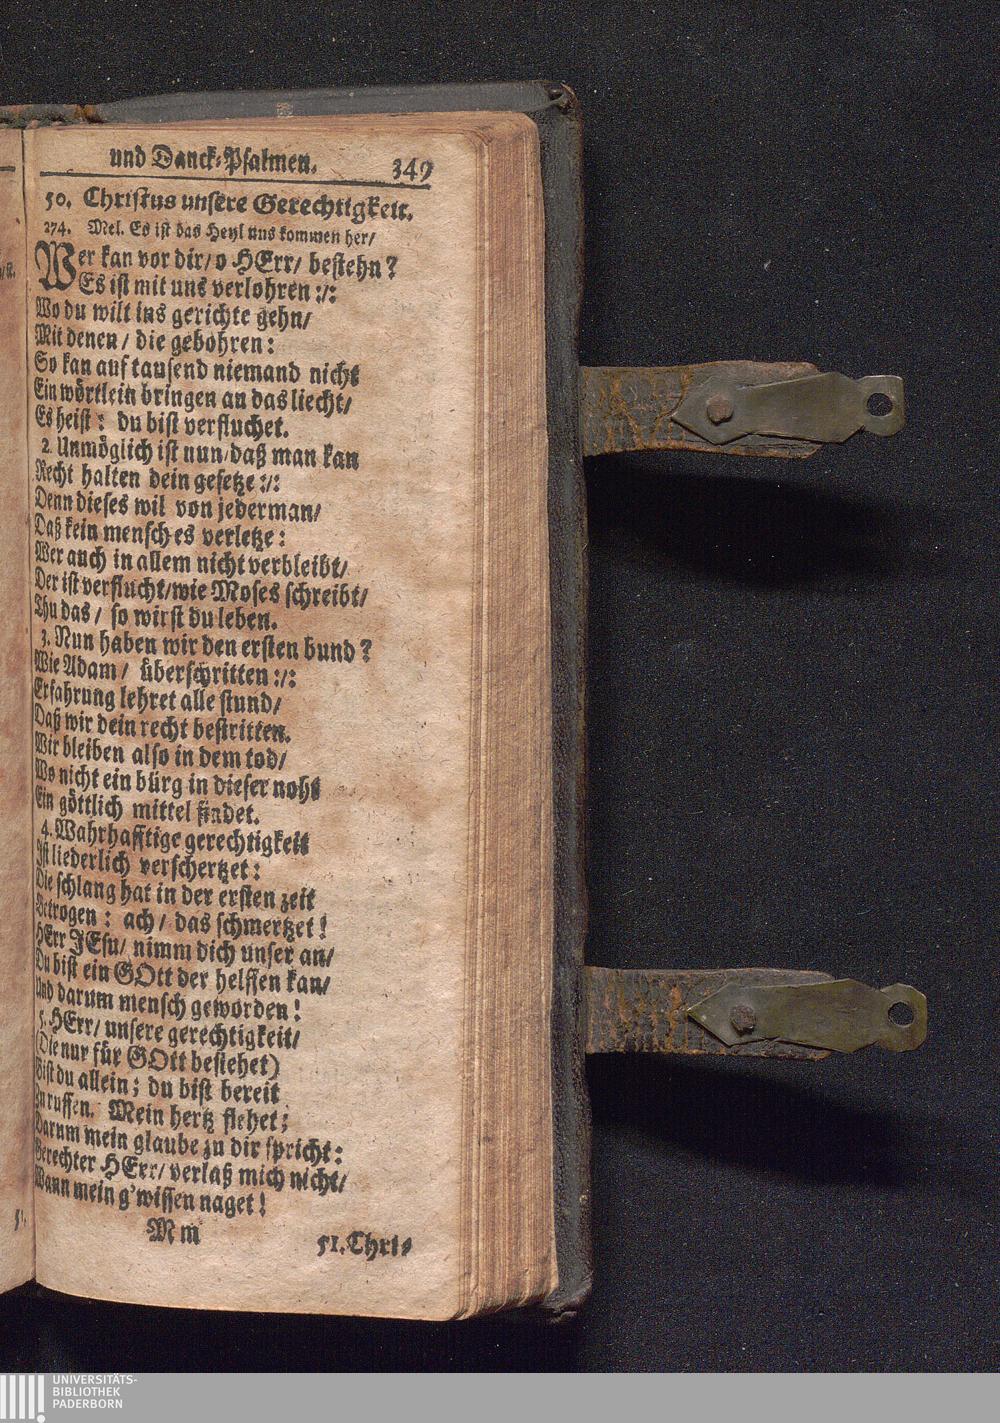 und Danck-Psalmen. 349
50. Christus unsere Gerechtigkeit.
274. Mel. Es ist das Heyl uns kommen her/
Wer kan vor dir/ o HErr/ bestehn?
Es ist mit uns verlohren :/:
Wo du wilt ins gerichte gehn/
Mit denen/ die gebohren:
So kan auf tausend niemand nicht
Ein wörtlein bringen an das liecht/
Es heist: du bist verfluchet.
2. Unmöglich ist nun/ daß man kan
Recht halten dein gesetze :/:
Denn dieses wil von jederman/
Daß kein mensch es verletze:
Wer auch in allem nicht verbleibt/
Der ist verflucht/ wie Moses schreibt/
Thu das/ so wirst du leben.
3. Nun haben wir den ersten bund?
Wie Adam/ überschritten :/:
Erfahrung lehret alle stund/
Daß wir dein recht bestritten.
Wir bleiben also in dem tod/
Wo nicht ein bürg in dieser noht
Ein göttlich mittel findet.
4. Wahrhafftige gerechtigkeit
Ist liederlich verschertzet:
Die schlang hat in der ersten zeit
Betrogen: ach/ das schmertzet!
HErr JEsu/ nimm dich unser an/
Du bist ein GOtt der helffen kan/
Und darum mensch geworden!
5. HErr/ unsere gerechtigkeit/
(Die nur für GOtt bestehet)
Bist du allein; du bist bereit
Zu ruffen. Mein hertz flehet;
Darum mein glaube zu dir spricht:
Gerechter HErr/ verlaß mich nicht/
Wann mein g'wissen naget!
Mm 51. Chri-
UNIVERSITÄTS-
BIBLIOTHEK
PADERBORN